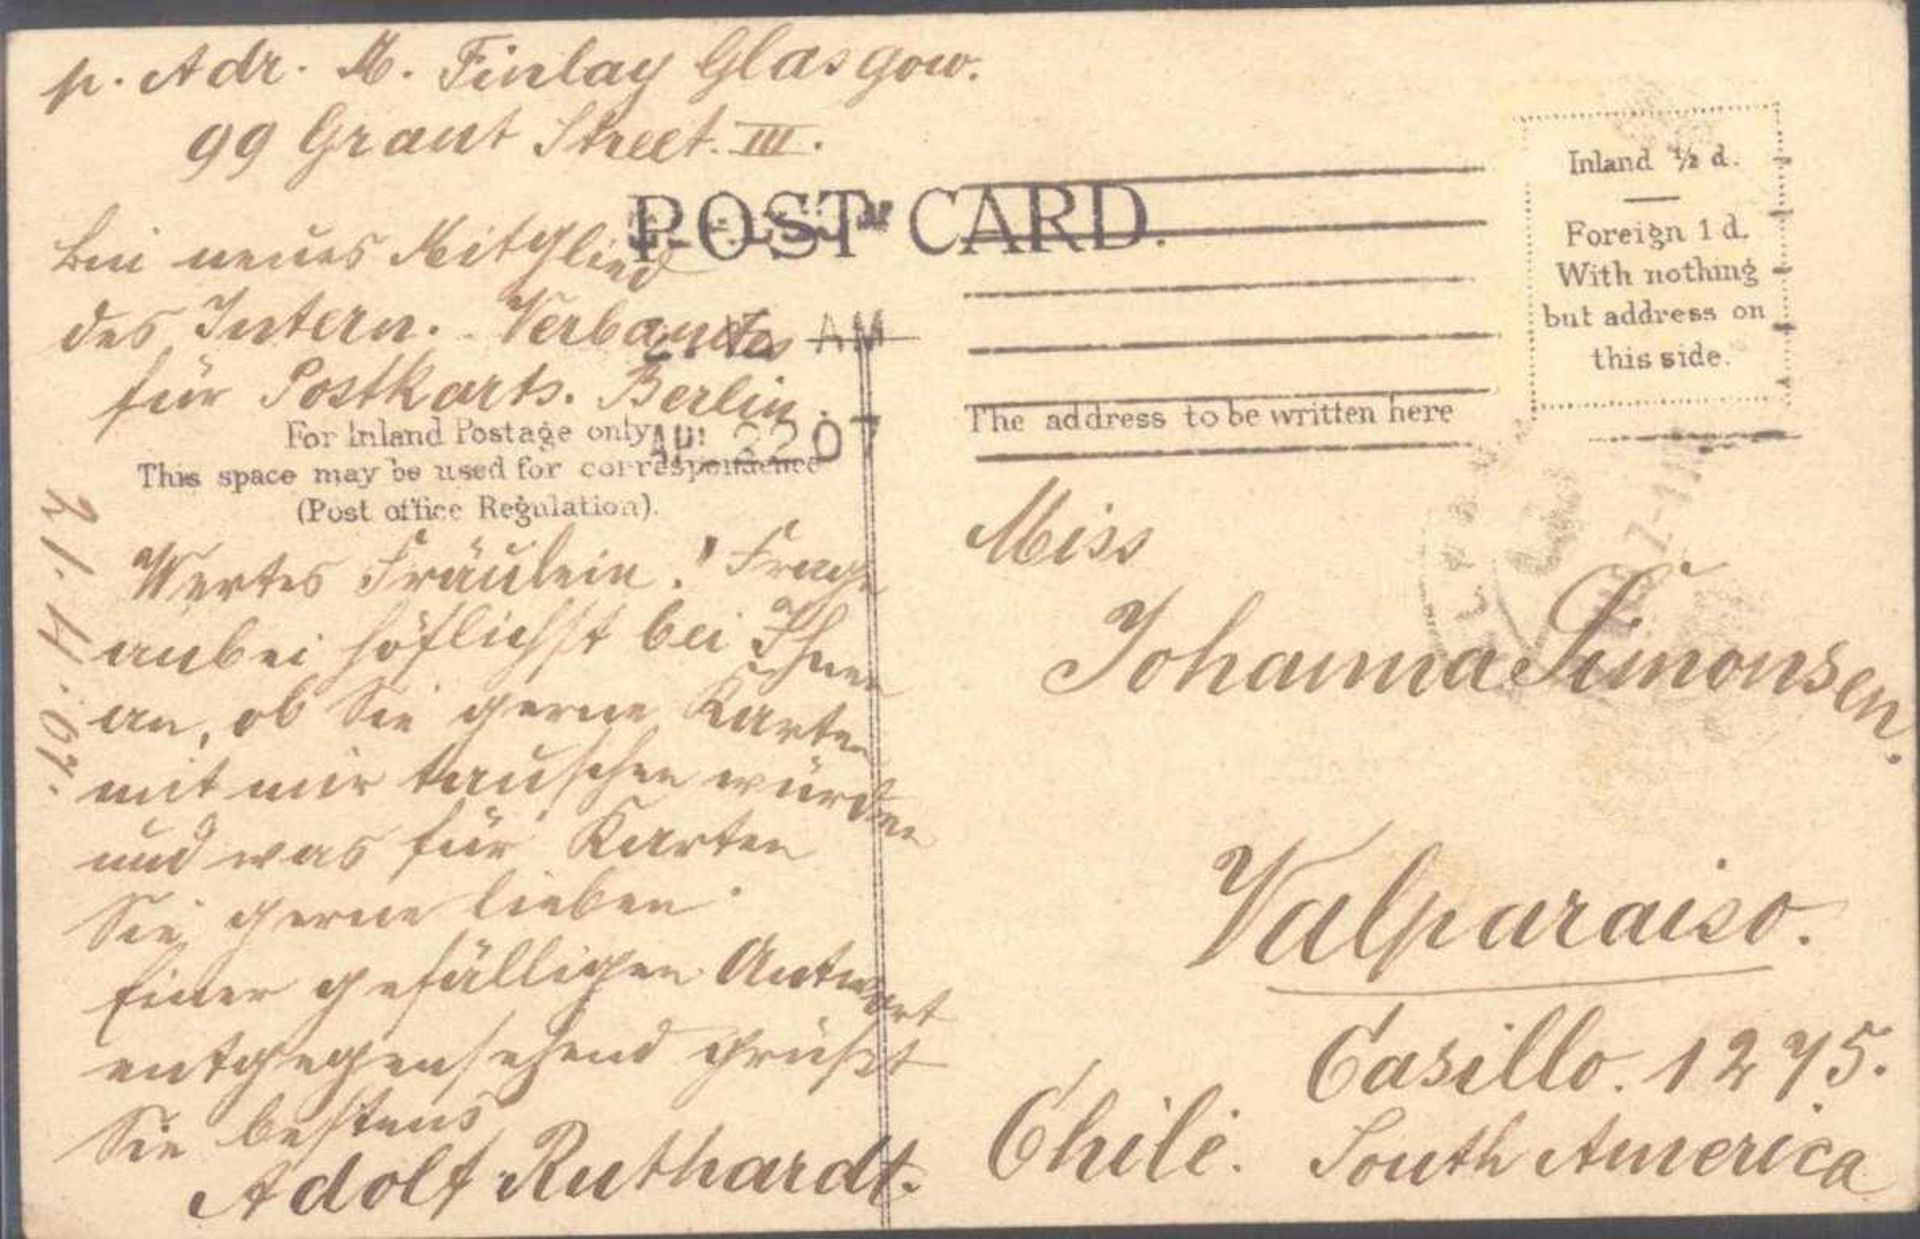 p. Adr. M. Finlay Glasgow.
99 Grant Street. III.
POST CARD.
Bin neues Mitglied
des Intern. Verbandes
für Postkarts. Berlin.
AM
AP 22 07
For Inland Postage only
This space may be used for correspondence
(Post office Regulation).
21.4.07.
Wertes Fräulein! Frage
anbei höflichst bei Ihnen
an, ob Sie gerne Karten
mit mir tauschen würden
und was für Karten
Sie gerne lieben.
Einer gefälligen Antwort
entgegensehend grüßt
Sie bestens
Adolf Ruthardt.
Inland ½ d.
Foreign 1 d.
With nothing
but address on
this side.
The address to be written here
Miss
Johanna Simonsen.
Valparaiso.
Casillo. 1275.
Chile. South America